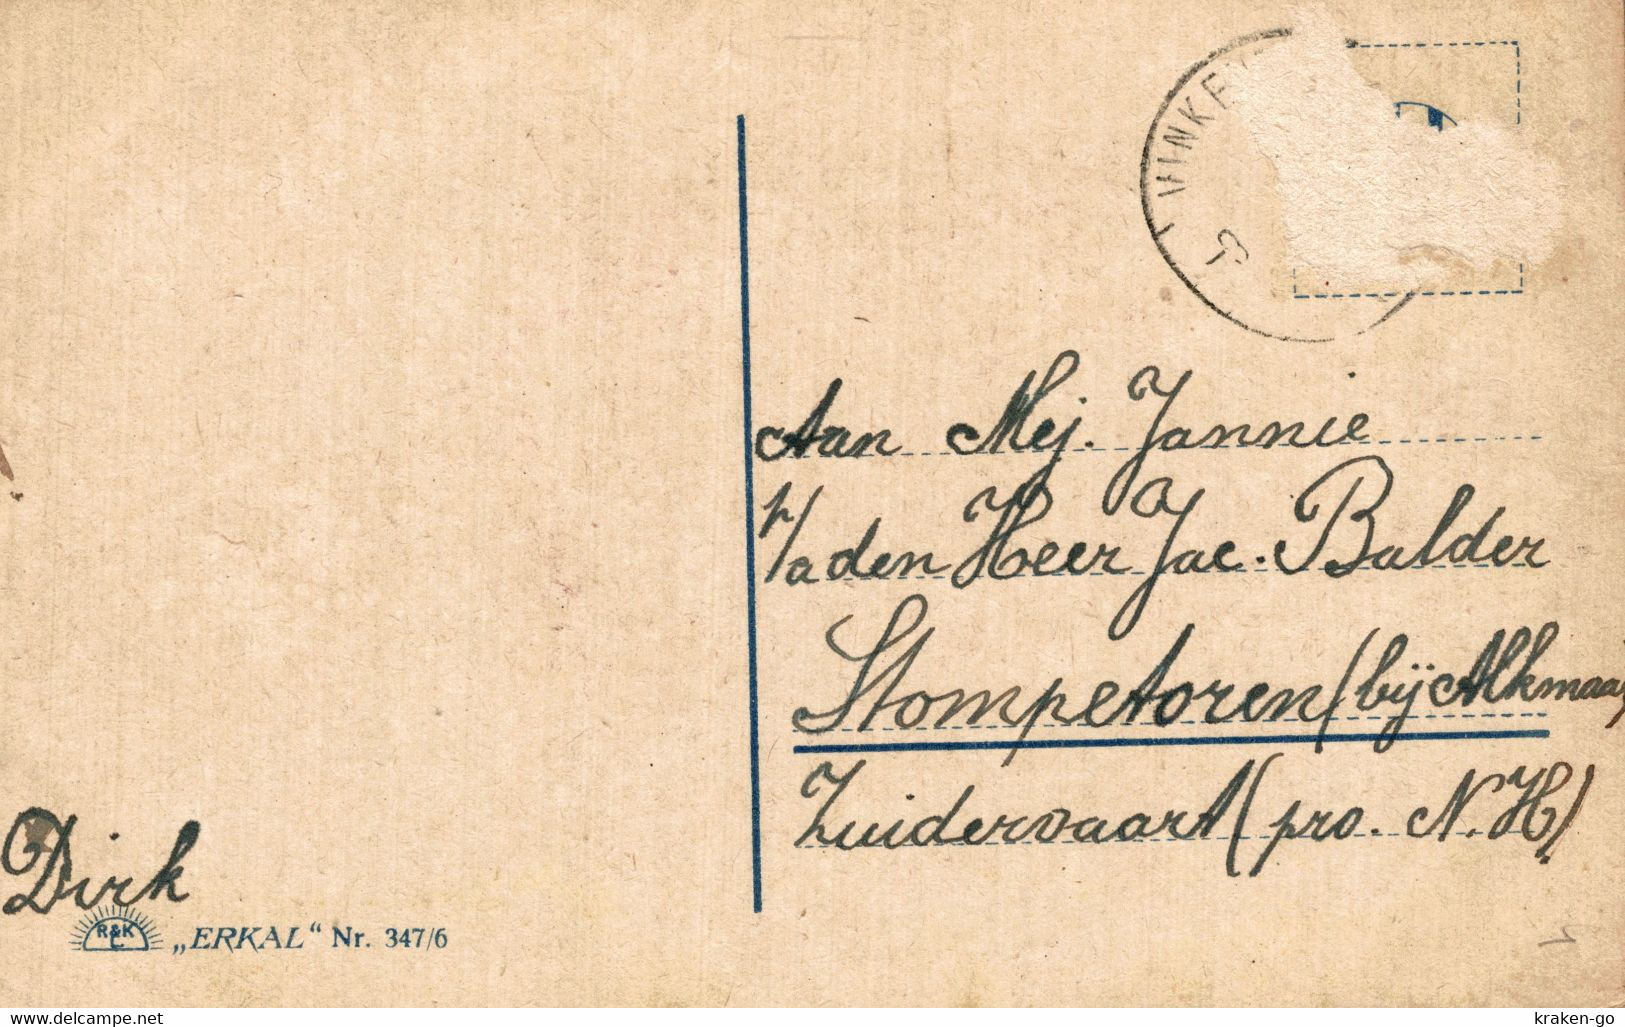 VINKE
Aan Mej. Jannie
p/a den Heer Jac. Balder
Stompetoren (bij Alkmaar)
Zuidervaart (pro. N.H)
Dirk
R&K
L
„ERKAL“ Nr. 347/6
www.delcampe.net
kraken-go